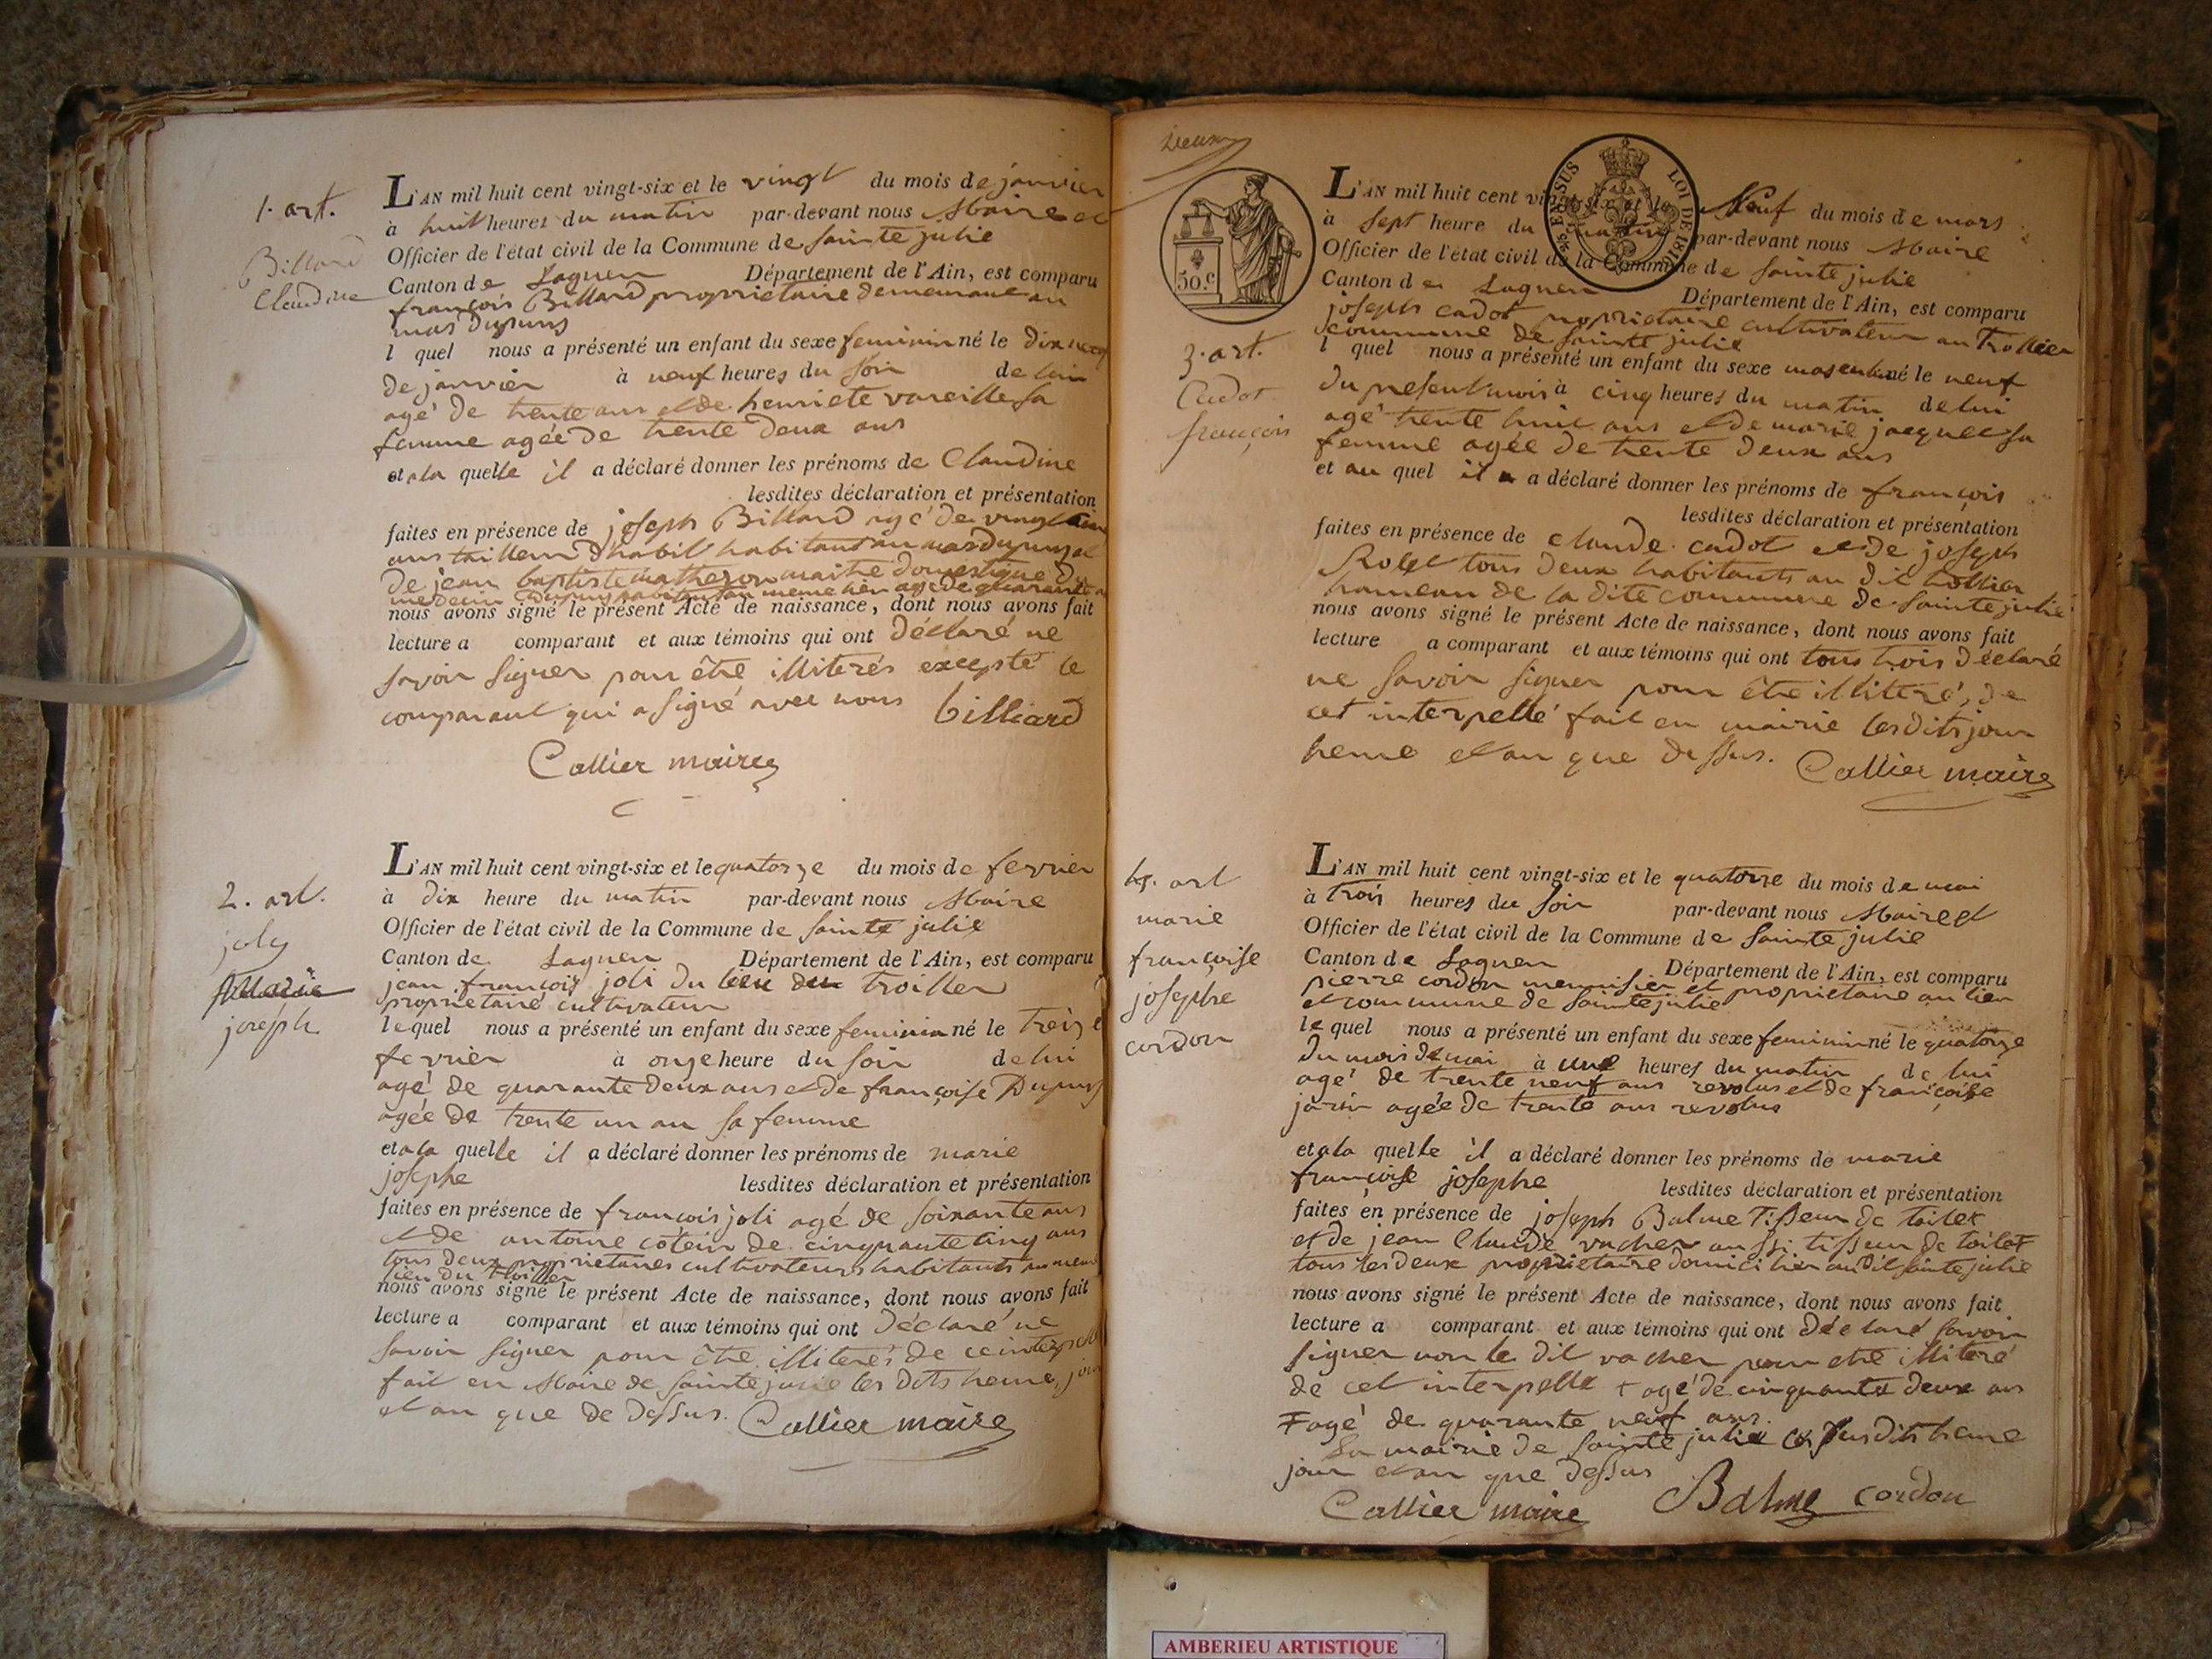 1. art.
Billard
Claudine
L'AN mil huit cent vingt-six et le vingt du mois de janvier
à huit heures du matin par-devant nous Maire et
Officier de l'état civil de la Commune de sainte julie
Canton de Lagneu Département de l'Ain, est comparu
françois Billard propriétaire demeurant au
mas dupuis
l quel nous a présenté un enfant du sexe feminin né le dix neuf
de janvier à neuf heures du soir de lui
agé de trente ans et de henriete vareille sa
femme agée de trente deux ans
et a la quelle il a déclaré donner les prénoms de Claudine
lesdites déclaration et présentation
faites en présence de joseph Billard agé de vingt
ans tailleur d'habit habitant au mas dupuis et
de jean baptiste matheron maitre domestique du
medecin Dupuis habitant au meme lieu agé de quarante
nous avons signé le présent Acte de naissance, dont nous avons fait
lecture a comparant et aux témoins qui ont déclaré ne
savoir signer pour être illiterés excepté le
comparant qui a signé avec nous billiard
Collier maire
2. art.
joly
joseph
L'AN mil huit cent vingt-six et le quatorze du mois de fevrier
à dix heure du matin par-devant nous Maire
Officier de l'état civil de la Commune de sainte julie
Canton de Lagneu Département de l'Ain, est comparu
jean françois joli du lieu du troiller
propriétaire cultivateur
lequel nous a présenté un enfant du sexe feminin né le treize
fevrier à onze heure du soir de lui
agé de quarante deux ans et de françoise Dupuis
agée de trente un an sa femme
et a la quelle il a déclaré donner les prénoms de marie
josephe lesdites déclaration et présentation
faites en présence de francois joli agé de soixante ans
et de antoine cotein de cinquante cinq ans
tous deux propriétaires cultivateurs habitants au meme
lieu du troiller
nous avons signé le présent Acte de naissance, dont nous avons fait
lecture a comparant et aux témoins qui ont déclaré ne
savoir signer pour être illiterés de ce interpellé
fait en Maire de sainte julie les dits heure, jour
et an que de dessus. Collier maire
Deux
50.c
EN SUS LOI DE 1816
3. art.
Cadot
françois
L'AN mil huit cent vingt-six et le Neuf du mois de mars
à sept heure du matin par-devant nous Maire
Officier de l'état civil de la Commune de sainte julie
Canton de Lagneu Département de l'Ain, est comparu
joseph cadot propriétaire cultivateur au Trollier
commune de sainte julie
l quel nous a présenté un enfant du sexe masculin né le neuf
du present mois à cinq heures du matin de lui
agé trente huit ans et de marie jacquet sa
femme agée de trente deux ans
et au quel il a déclaré donner les prénoms de françois
lesdites déclaration et présentation
faites en présence de claude cadot et de joseph
Rolet tous deux habitants au dit trollier
hameau de la dite commune de sainte julie
nous avons signé le présent Acte de naissance, dont nous avons fait
lecture a comparant et aux témoins qui ont tous trois déclaré
ne savoir signer pour être illiteré, de
cet interpellé fait en mairie les dits jour
heure et an que dessus. Collier maire
4. art
marie
françoise
josephe
cordon
L'AN mil huit cent vingt-six et le quatorze du mois de mai
à trois heures du soir par-devant nous Maire et
Officier de l'état civil de la Commune de sainte julie
Canton de Lagneu Département de l'Ain, est comparu
pierre cordon menuisier et propriétaire au lieu
et commune de sainte julie
le quel nous a présenté un enfant du sexe feminin né le quatorze
du mois de mai à une heures du matin de lui
agé de trente neuf ans revolus et de françoise
jarin agée de trente ans revolus
et a la quelle il a déclaré donner les prénoms de marie
françoise josephe lesdites déclaration et présentation
faites en présence de joseph Balme Tisseur de toile +
et de jean Claude vacher aussi tisseur de toile ∓
tous les deux propriétaire domicilier au dit sainte julie
nous avons signé le présent Acte de naissance, dont nous avons fait
lecture a comparant et aux témoins qui ont déclaré savoir
signer non le dit vacher pour etre illiteré
de cet interpelle + agé de cinquante deux ans
∓ agé de quarante neuf ans.
En mairie de sainte julie les susdits heure
jour et an que dessus
Collier maire Balme cordon
AMBERIEU ARTISTIQUE